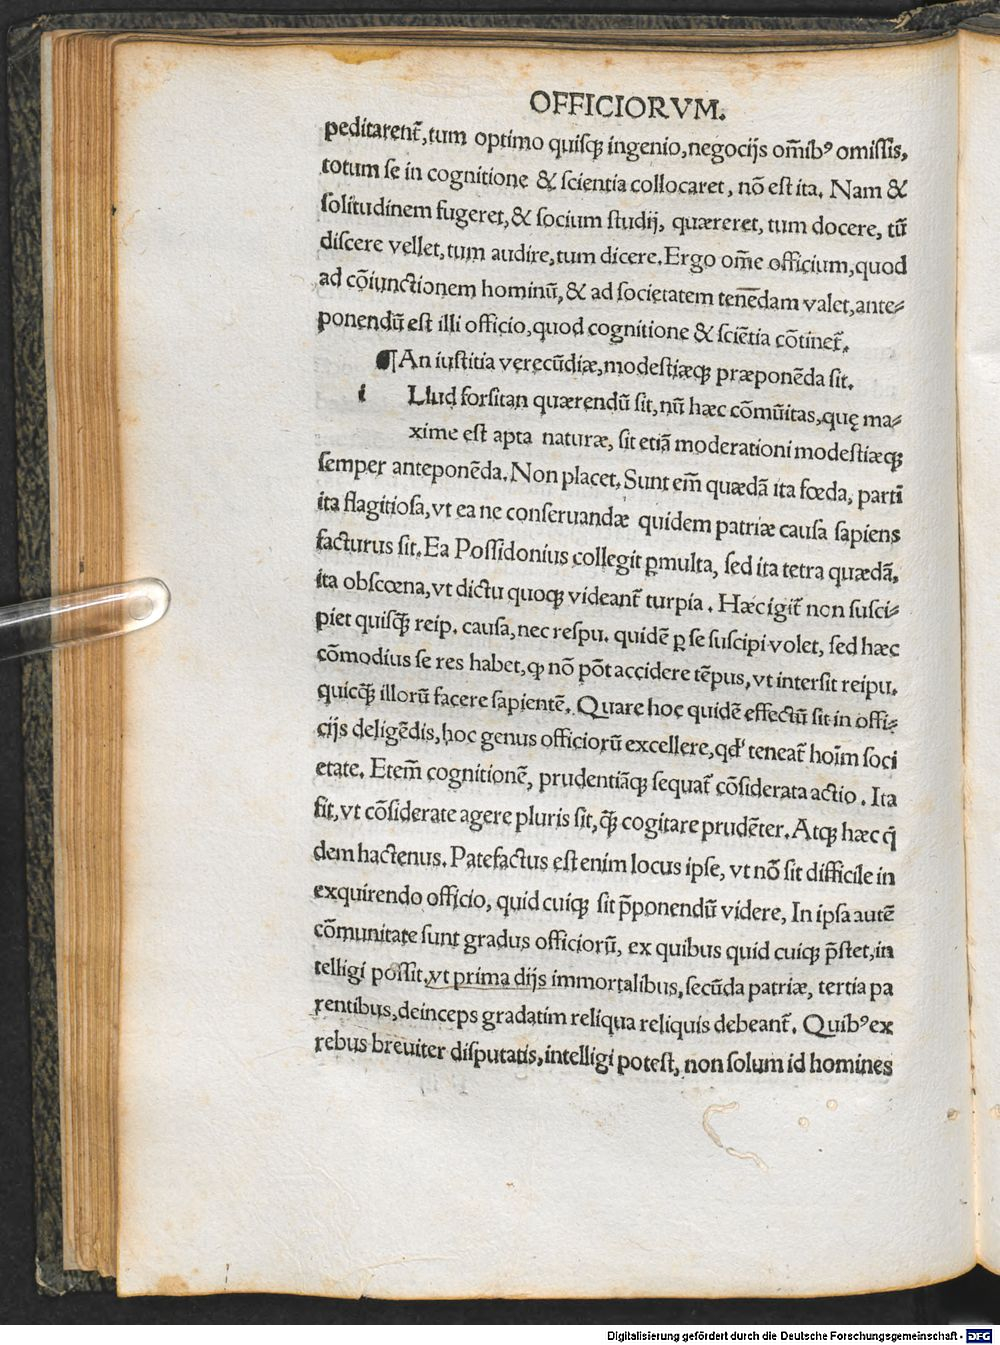 OFFICIORVM.
peditarent᷑, tum optimo quisq; ingenio, negocijs om̄ibꝰ omissis,
totum se in cognitione & scientia collocaret, nō est ita. Nam &
solitudinem fugeret, & socium studij, quæreret, tum docere, tū
discere vellet, tum audire, tum dicere. Ergo om̄e officium, quod
ad cōiunctionem hominū, & ad societatem tenēdam valet, ante-
ponendū est illi officio, quod cognitione & sciētia cōtinet᷑.
¶ An iustitia verecūdiæ, modestiæq; præponēda sit.
i Llud forsitan quærendū sit, nū hæc cōmūitas, quę ma-
xime est apta naturæ, sit etiā moderationi modestiæq;
semper anteponēda. Non placet. Sunt em̄ quædā ita fœda, parti
ita flagitiosa, vt ea ne conseruandæ quidem patriæ causa sapiens
facturus sit. Ea Possidonius collegit ꝑmulta, sed ita tetra quædā,
ita obscœna, vt dictu quoq; videant᷑ turpia. Hæc igit᷑ non susci-
piet quisq̄ reip. causa, nec respu. quidē ꝑ se suscipi volet, sed hæc
cōmodius se res habet, ꝙ nō pōt accidere tēpus, vt intersit reipu.
quicq̄ illorū facere sapientē. Quare hoc quidē effectū sit in offi-
cijs deligēdis, hoc genus officiorū excellere, qd' teneat᷑ hoīm soci
etate. Etem̄ cognitionē, prudentiāq; sequat᷑ cōsiderata actio. Ita
fit, vt cōsiderate agere pluris sit, q̄ cogitare prudēter. Atq; hæc q̄
dem hactenus. Patefactus est enim locus ipse, vt nō sit difficile in
exquirendo officio, quid cuiq; sit p̄ponendū videre, In ipsa autē
cōmunitate sunt gradus officiorū, ex quibus quid cuiq; p̄stet, in
telligi possit, vt prima dijs immortalibus, secūda patriæ, tertia pa
rentibus, deinceps gradatim reliqua reliquis debeant᷑. Quibꝰ ex
rebus breuiter disputatis, intelligi potest, non solum id homines
Digitalisierung gefördert durch die Deutsche Forschungsgemeinschaft - DFG